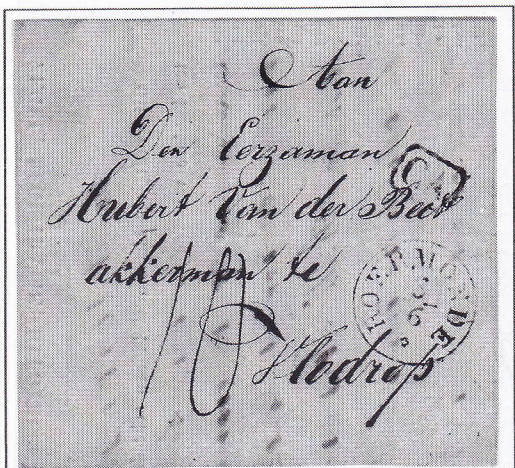 Aan
Den Eerzaman
Hubert Van der Beek
akkerman te
Vlodrop
10
ROERMONDE